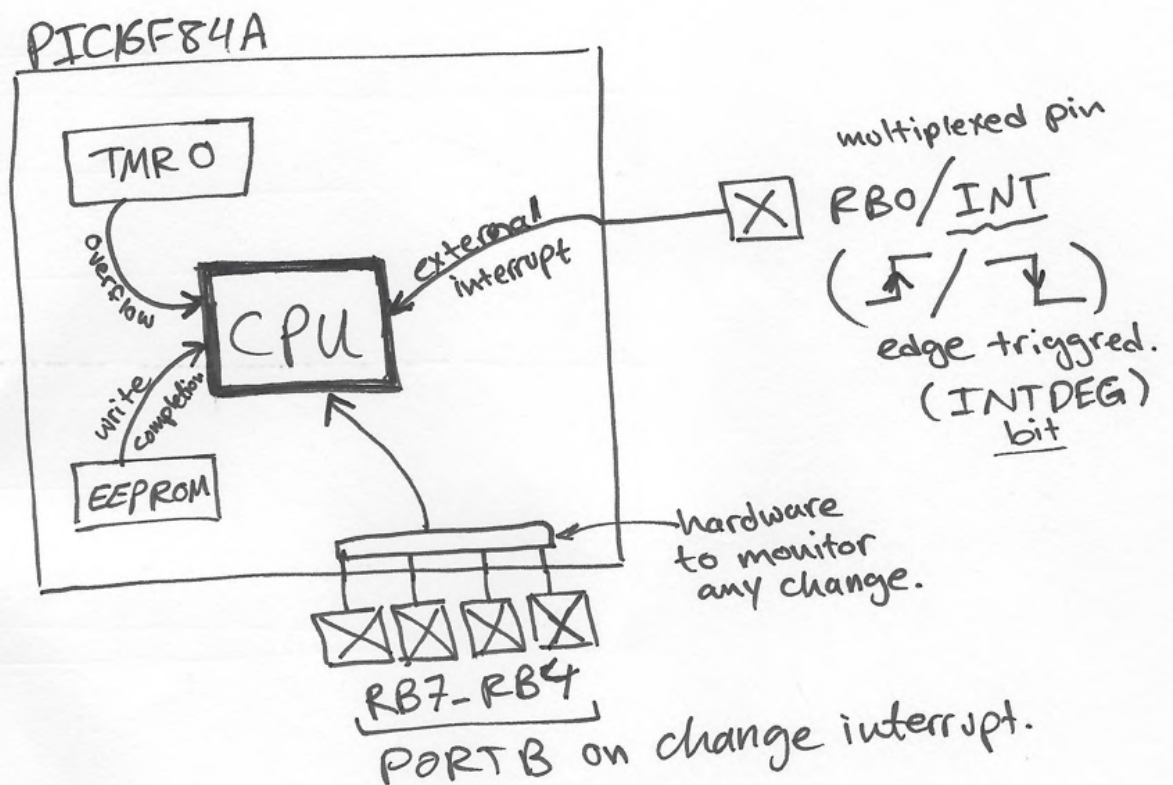 PIC16F84A
TMR 0
overflow
CPU
write
completion
EEPROM
external
interrupt
multiplexed pin
RB0/INT
( / )
edge triggred.
(INTDEG)
bit
hardware
to monitor
any change.
RB7-RB4
PORTB on change interrupt.